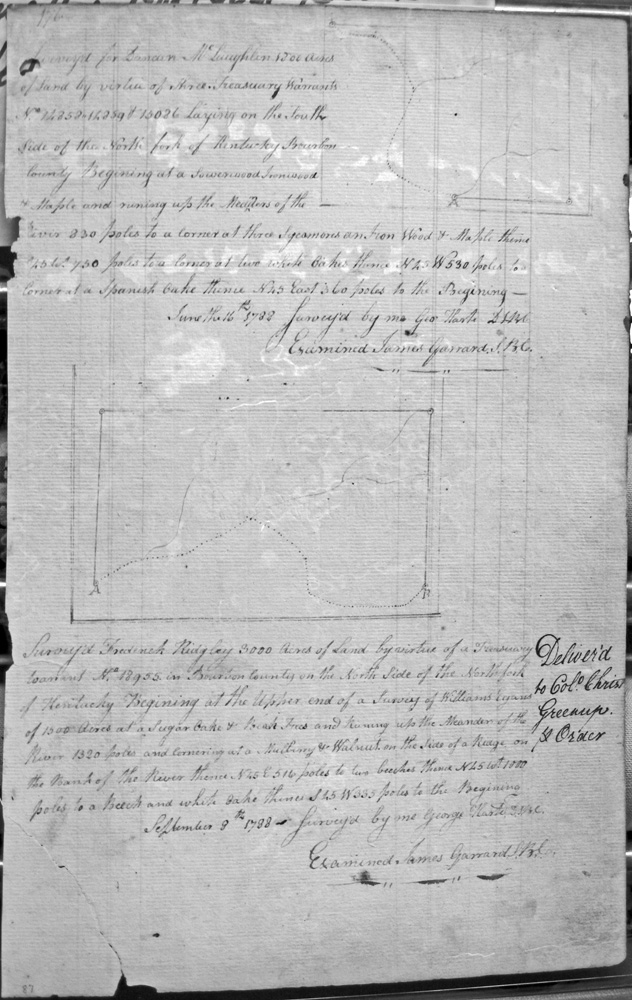 Survey'd for Duncan McLaughlin 1500 Acres
of Land by virtue of three Treasuary Warrants
No. 12852-12859 & 13026 Laying on the South
Side of the North fork of Kentucky Bourbon
County Begining at a Sowerwood Ironwood
& Maple and runing up the Meaders of the
River 830 poles to a corner at three Sycamores an Iron Wood & Maple thence
S45 W 730 poles to a corner at two white Oakes thence N45 W 530 poles to a
Corner at a Spanish Oake thence N45 East 360 poles to the Begining —
June the 16th 1788 Survey'd by me Geo Harts D.S.B.C
Examined James Garrard, S.B.C.
A
B
A
B
Survey'd Frederick Ridgley 3000 Acres of Land by virtue of a Treasuary
Warrant No. 18955 in Bourbon County on the North Side of the North fork
of Kentucky Begining at the Upper end of a Survey of Williams
of 1500 Acres at a Sugar Oake & Beech Trees and Runing up the Meander of the
River 1320 poles and cornering at a Mulberry & Walnut on the Side of a Ridge on
the Bank of the River thence N45 E 516 poles to two beeches thence N45 Wt 1000
poles to a Beech and white Oake thence S45 W 555 poles to the Begining
September 8th 1788 — Survey'd by me George Harts D.S.B.C.
Examined James Garrard S.B.C.
Deliver'd
to Colo. Christ
Greenup.
p Order
83